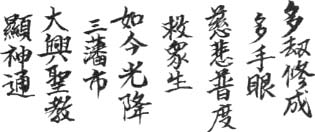 多劫修成
多手眼
慈悲普度
救眾生
如今光降
三藩市
大興聖教
顯神通